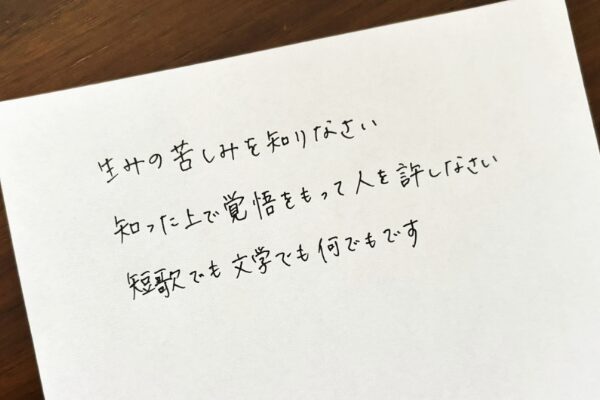 生みの苦しみを知りなさい
知った上で覚悟をもって人を許しなさい
短歌でも文学でも何でもです